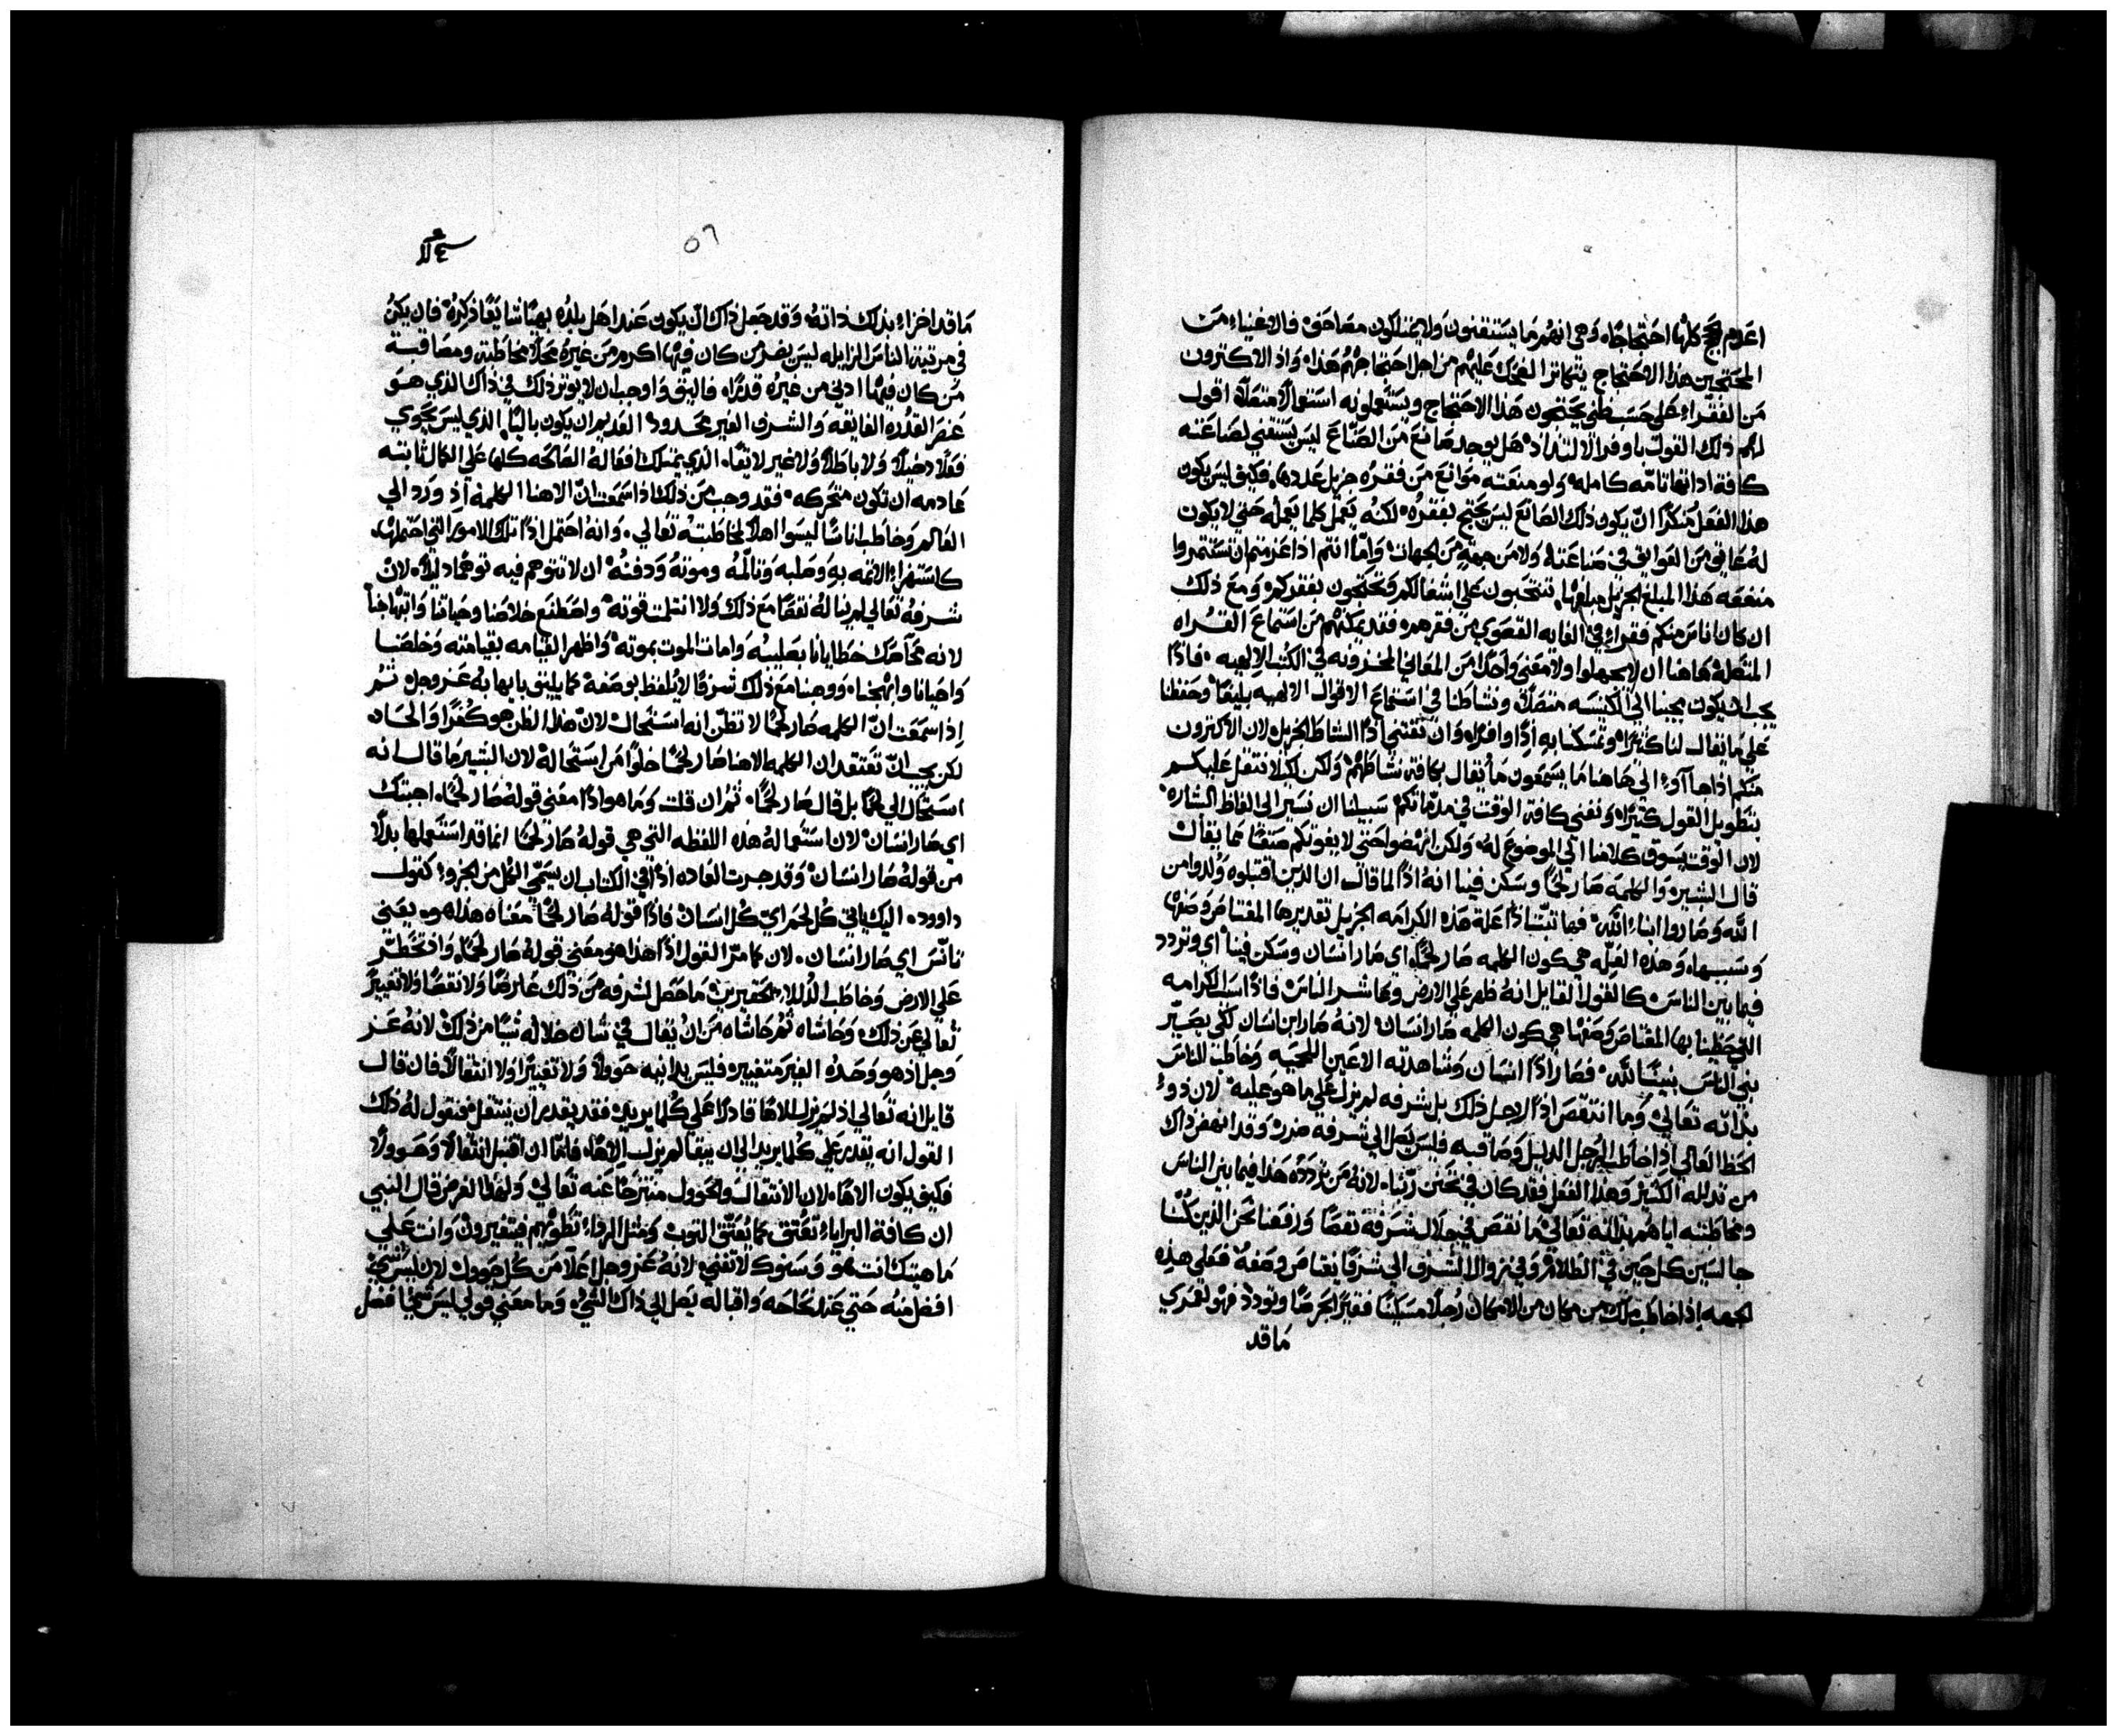 اعدم الحجج كلها احتجاجًا وهي انهم ما يستقنون ولا يمتلكون مصاحف فالاغنياء من
المحتجين هذا الاحتجاج يتكاثر الضحك عليهم من اجل احتجاجهم هذا واذ الاكترون
من الفقراء على حسب ظني يحتجون هذا الاحتجاج ويستعملونه استعمالًا متصلًا اقول
لهم ذلك القول باوفر الالتذاذ هل يوجد صانع من الصناع ليس يستقني لصناعته
كافة اداتها تامه كاملة ولو منعته موانع من فقره جزيل عددها فكيف ليس يكون
هذا الفعل منكرًا ان يكون ذلك الصانع ليس يحتج بفقره لكنه يعمل كلما يعمله حتي لا يكون
له عايق من العوايق في صناعته ولا من جهة من الجهات واما انتم اذا عزمتم ان تستثمروا
منفعه هذا المبلغ الجزيل مبلغها تنتحبون علي اشغالكم وتحتجون بفقركم ومع ذلك
ان كان اناس منكم فقراء في الغايه القصوي من فقرهم فقد يمكنهم من استماع القراه
المتصلة هاهنا ان لا يجهلوا ولا معنى واحدًا من المعاني المخزونه في الكتب الالهيه فاذًا
يجب ان يكون مجينا الي الكنيسه متصلًا ونشاطنا في استماع الاقوال الالهيه بليغًا وحفظنا
علي ما يقال لنا كثيرًا وتمسكنا به اذًا وافرًا وان نقتني اذًا النشاط الجزيل لان الاكترون
منكم اذا جاءوا الي هاهنا ما يسمعون ما يقال بكافة نشاطهم ولكن لكيلا نثقل عليكم
بتطويل القول كثيرًا ونفني كافة الوقت في مذماتكم سبيلنا ان نسير الى الفاظ البشاره
لان الوقت يسوق كلامنا الي الموضوع له ولكن انهضوا حتى لا يفوتكم صنفًا مما يقال
قال البشير والكلمه صار لحمًا وسكن فينا انه اذًا لما قال ان الذين اقتبلوه ولدوا من
الله وصاروا ابناء الله فها تبتنا اذًا علة هذه الكرامه الجزيل تقديرها المقتاص وصفها
وسببها وهذه العله هي كون الكلمه صار لحمًا اي صار انسان وسكن فينا اي وتردد
فيما بين الناس كالقول القايل انه ظهر على الارض وعاشر الناس فاذًا سبب الكرامه
التي حظينا بها المقتاص وصفها هي كون الكلمه صار انسان لانه صار ابن انسان لكي يصير
بني الناس بنينًا لله فصار اذًا انسان وشاهدته الاعين اللحميه وخاطب الناس
بذاته تعالي وما انتقص اذًا لاجل ذلك بل شرفه لم يزل علي ما هو عليه لان ذو
الحظ العالي اذا خاطب الرجل الذليل وصاقبه فليس يصل الي شرفه ضرر وقد انهض ذاك
من تذلله الكثير وهذا الفعل فقد كان في تحنن ربنا لانه من تردده هذا فيما بين الناس
ومخاطبته اياهم بذاته تعالي ما نقص في جلال شرفه نقصًا ورفعنا نحن الذين كنا
جالسين كل حين في الظلام وفي زوال الشرف الي شرفا يقتاص وصفه فعلي هذه
الجهه اذا خاطب ملك من مكان من الامكان رجلًا مسكينًا فقيرًا بحرصًا وتودد فهو لعمري
ما قد
٥٦
ما قد اخزاء بذلك ذاته وقد جعل ذاك ان يكون عند اهل بلده بهيًا شايعًا ذكره فان يكن
في مرتبة الناس الزايله ليس يضر من كان فيها اكرم من غيره محلًا مخاطبته ومصاقبته
من كان فيها ادني من غيره قدرًا فاليق واوجب ان لا يوتر ذلك في ذاك الذي هو
عنصر القدره الفايقه والشرف الغير محدود القديم ان يكون باليًا الذي ليس يحوي
فعلًا دخيلًا ولا باطلًا ولا غير لايقًا الذي يمتلك افعاله الصالحه كلها علي الكمال ثابته
عادمه ان تكون متحركه فقد وجب من ذلك اذا سمعت ان الاهنا الكلمه اذ ورد الي
العالم وخاطب اناسًا ليسوا اهلًا لمخاطبته تعالي وانه احتمل اذًا تلك الامور التي احتملها
كاستهزاء الائمه به وصلبه وتالمه وموته ودفنه ان لا تتوهم فيه توهمًا دليلًا لان
شرفه تعالي لم يناله نقصًا مع ذلك ولا انثلمت قوته واصطنع خلاصنا وحياتنا وابتهاجنا
لانه محا صك خطايانا بصليبه وامات الموت بموته واظهر القيامه بقيامته وخلصنا
واحيانا وابهجنا ووهبنا مع ذلك شرفًا لا يلفظ بوصفه كما يليق بابهايه عز وجل ثم
اذا سمعت ان الكلمه صار لحمًا لا تظن انه استحال لان هذا الظن هو كفرًا والحاد
لكن يجب ان تعتقد ان الكلمه الاهنا صار لحمًا خلوًا من استحاله لان البشير ما قال انه
استحال الي لحمًا بل قال صار لحمًا ثم ان قلت وما هو اذًا معنى قوله صار لحمًا اجبتك
اي صار انسان لان استعماله هذه اللفظه التي هي قوله صار لحمًا انما قد استعملها بدلًا
من قوله صار انسان وقد جرت العاده اذًا في الكتاب ان يسمي الكل من الجزو كقول
داوود اليك ياتي كل لحم اي كل انسان فاذًا قوله صار لحمًا معناه هذا هو يعني
تانس اي صار انسان لان كما مر القول اذًا هذا هو معنى قوله صار لحمًا واذ تخطر
علي الارض وخاطب الذللا الحقيرين ما حصل لشرفه من ذلك عارضًا ولا نقصًا ولا تغييرًا
تعالي عن ذلك وحاشاه ثم حاشاه من ان يقال في شان جلاله شيًا من ذلك لانه عز
وجل اذ هو وحده الغير متغيير فليس يدانيه حوولًا ولا تغييرًا ولا انتقالًا فان قال
قايل انه تعالي اذ لم يزل الاهًا قادرًا علي كلما يريد فقد يقدر ان ينتقل فنقول له ذلك
القول انه يقدر علي كلما يريد الي ان يبقا لم يزل الاهًا فاما ان اقتبل انتقالًا وحوولًا
فكيف يكون الاهًا لان الانتقال والحوول منتزحًا عنه تعالي ولهذا الغرض قال النبي
ان كافة البرايا تعتق كما يعتق الثوب ومثل الرداء تطويهم فيتغيرون وانت علي
ماهيتك انت هو وسنوك لا تفني لانه عز وجل اعلا من كل حوول لان ليس شيء
افضل منه حتي عند نجاحه واقباله يصل الي ذاك الشيء وما معني قولي ليس شيًا افضل